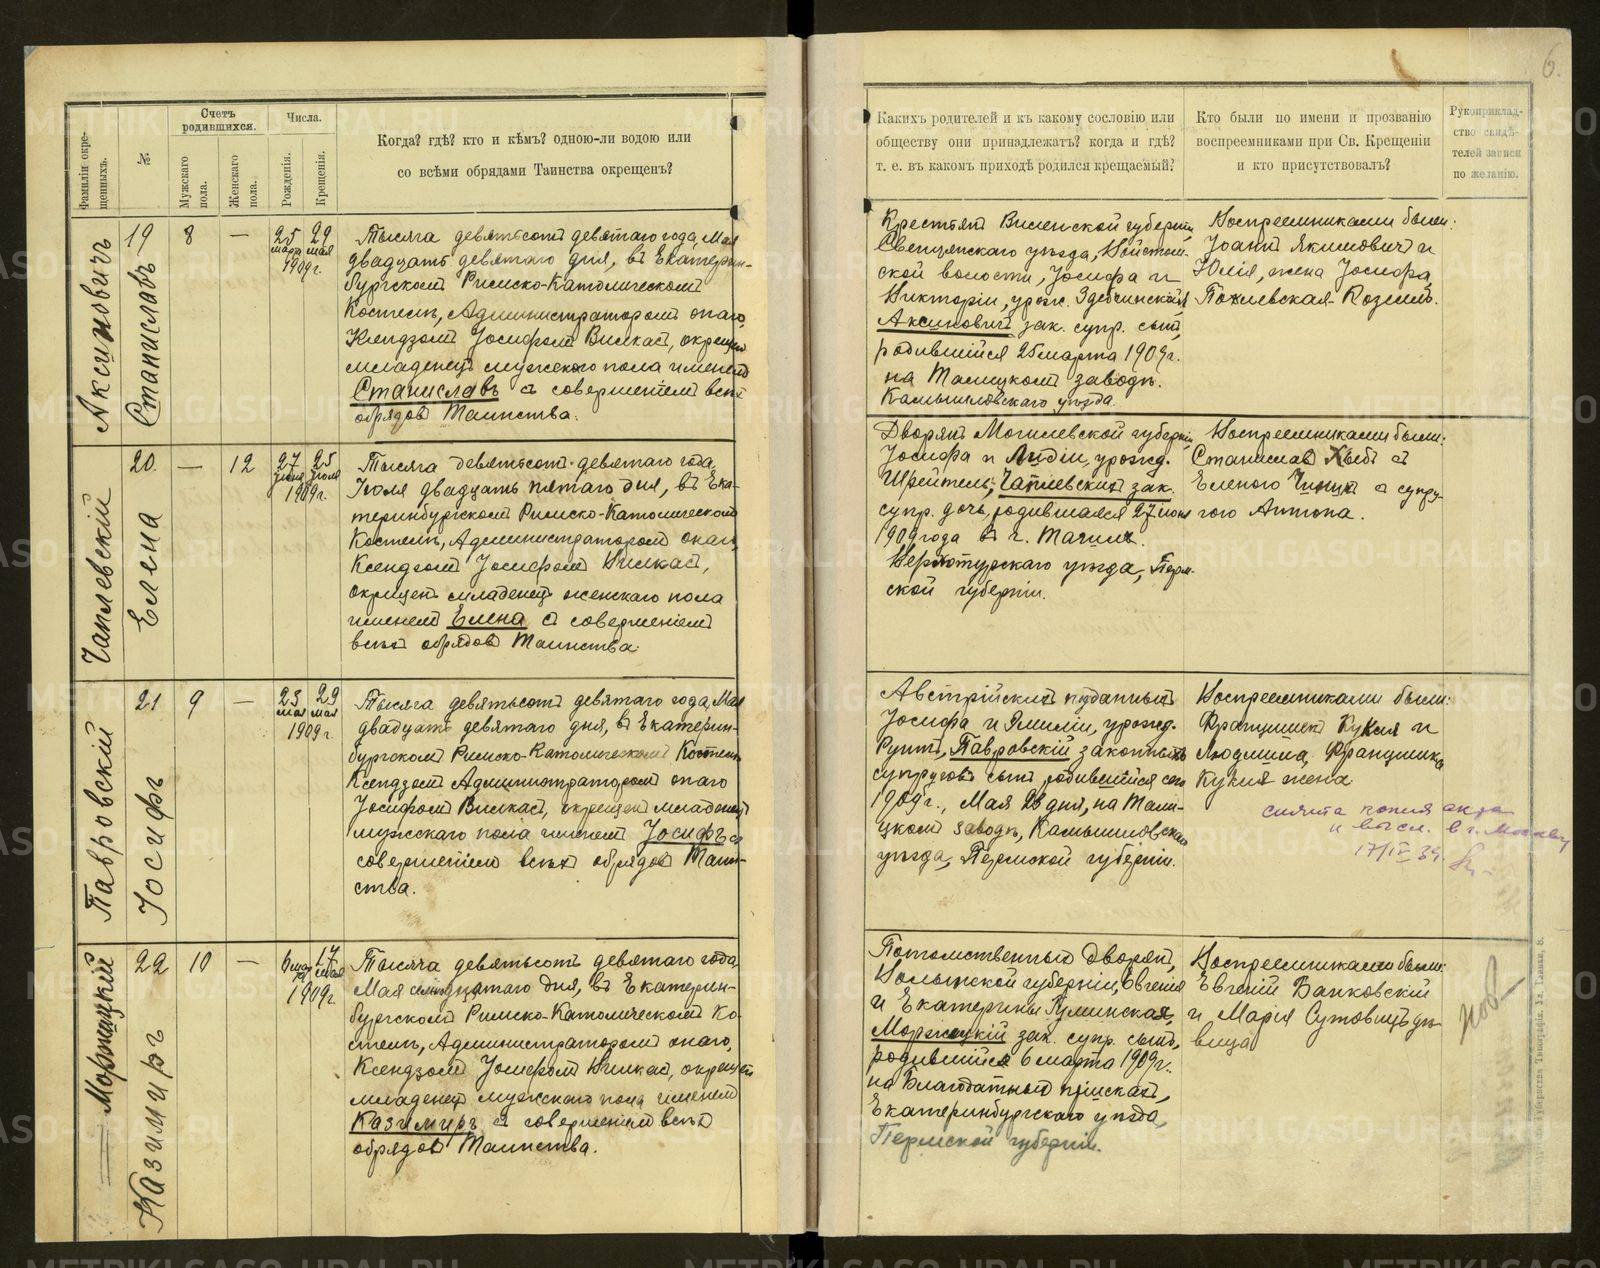 6.
Фамиліи окре-
щенныхъ.
№
Счетъ
родившихся.
Мужскаго
пола.
Женскаго
пола.
Числа.
Рожденія.
Крещенія.
Когда? гдѣ? кто и кѣмъ? одною-ли водою или
со всѣми обрядами Таинства окрещенъ?
Какихъ родителей и къ какому сословію или
обществу они принадлежатъ? когда и гдѣ?
т. е. въ какомъ приходѣ родился крещаемый?
Кто были по имени и прозванію
воспреемниками при Св. Крещеніи
и кто присутствовалъ?
Рукоприклад-
ство свидѣ-
телей записи
по желанію.
Аксиновичъ
Станиславъ
19
8
—
25 29
марта мая
1909 г.
Тысяча девятьсотъ девятаго года, Мая
двадцать девятаго дня, въ Екатерин-
бургскомъ Римско-Католическомъ
Костелѣ, Администраторомъ онаго,
Ксендзомъ Іосифомъ Вилкасъ, окрещенъ
младенецъ мужского пола именемъ
Станиславъ съ совершеніемъ всѣхъ
обрядовъ Таинства.
Крестьянъ Виленской губерніи,
Свенцянскаго уѣзда,
ской волости, Іосифа и
Викторіи, урож.
Аксиновичъ зак. супр. сынъ,
родившійся 25 марта 1909 г.
на Талицкомъ заводѣ.
Камышловскаго уѣзда.
Воспреемниками были:
Іоаннъ Якимовичъ и
Юлія, жена Іосифа,
Чаплевскій
Елена
20.
—
12
27 25
іюня іюля
1909 г.
Тысяча девятьсотъ девятаго года,
Іюля двадцать пятаго дня, въ Ека-
теринбургскомъ Римско-Католическомъ
Костелѣ, Администраторомъ онаго,
Ксендзомъ Іосифомъ Вилкасъ,
окрещенъ младенецъ женскаго пола
именемъ Елена съ совершеніемъ
всѣхъ обрядовъ Таинства.
Дворянъ Могилевской губерніи,
Іосифа и Лидіи, урожд.
Шрейтеръ, Чаплевскихъ зак.
супр. дочь, родившаяся 27 іюня
1909 года въ
Верхотурскаго уѣзда, Перм-
ской губерніи.
Воспреемниками были:
Станиславъ съ
Еленою съ супру-
гою Антона.
Павровскій
Іосифъ
21
9
—
23 29
мая мая
1909 г.
Тысяча девятьсотъ девятаго года, Мая
двадцать девятаго дня, въ Екатерин-
бургскомъ Римско-Католическомъ Костелѣ
Ксендзомъ Администраторомъ онаго
Іосифомъ Вилкасъ, окрещенъ младенецъ
мужескаго пола именемъ Іосифъ съ
совершеніемъ всѣхъ обрядовъ Таин-
ства.
Австрійскихъ подданныхъ
Іосифа и Эмиліи, урожд.
Рунтъ, Павровскій законныхъ
супруговъ сынъ, родившійся сего
1909 г., Мая 23 дня, на Тали-
цкомъ заводѣ, Камышловскаго
уѣзда, Пермской губерніи.
Воспреемниками были:
Францишекъ Кукля и
Людмила, Францишка
Кукля жена
снята копия акта
и высл. в г. Москву
17/IV 39.
Моржицкій
Казимиръ
22
10
—
6 мар 17 мая
1909 г.
Тысяча девятьсотъ девятаго года,
Мая семнадцатаго дня, въ Екатерин-
бургскомъ Римско-Католическомъ Ко-
стелѣ, Администраторомъ онаго,
Ксендзомъ Іосифомъ Вилкасъ, окрещенъ
младенецъ мужскаго пола именемъ
Казимиръ съ совершеніемъ всѣхъ
обрядовъ Таинства.
Потомственныхъ Дворянъ,
Волынской губерніи, Евгенія
и Екатерины Гуминская,
Моржицкій зак. супр. сынъ,
родившійся 6 марта 1909 г.
на Благодатныхъ пріискахъ,
Екатеринбургскаго уѣзда,
Пермской губерніи.
Воспреемниками были:
Евгеній Банковскій
и Марія Сутовичъ дѣ-
вица
METRIKI.GASO-URAL.RU